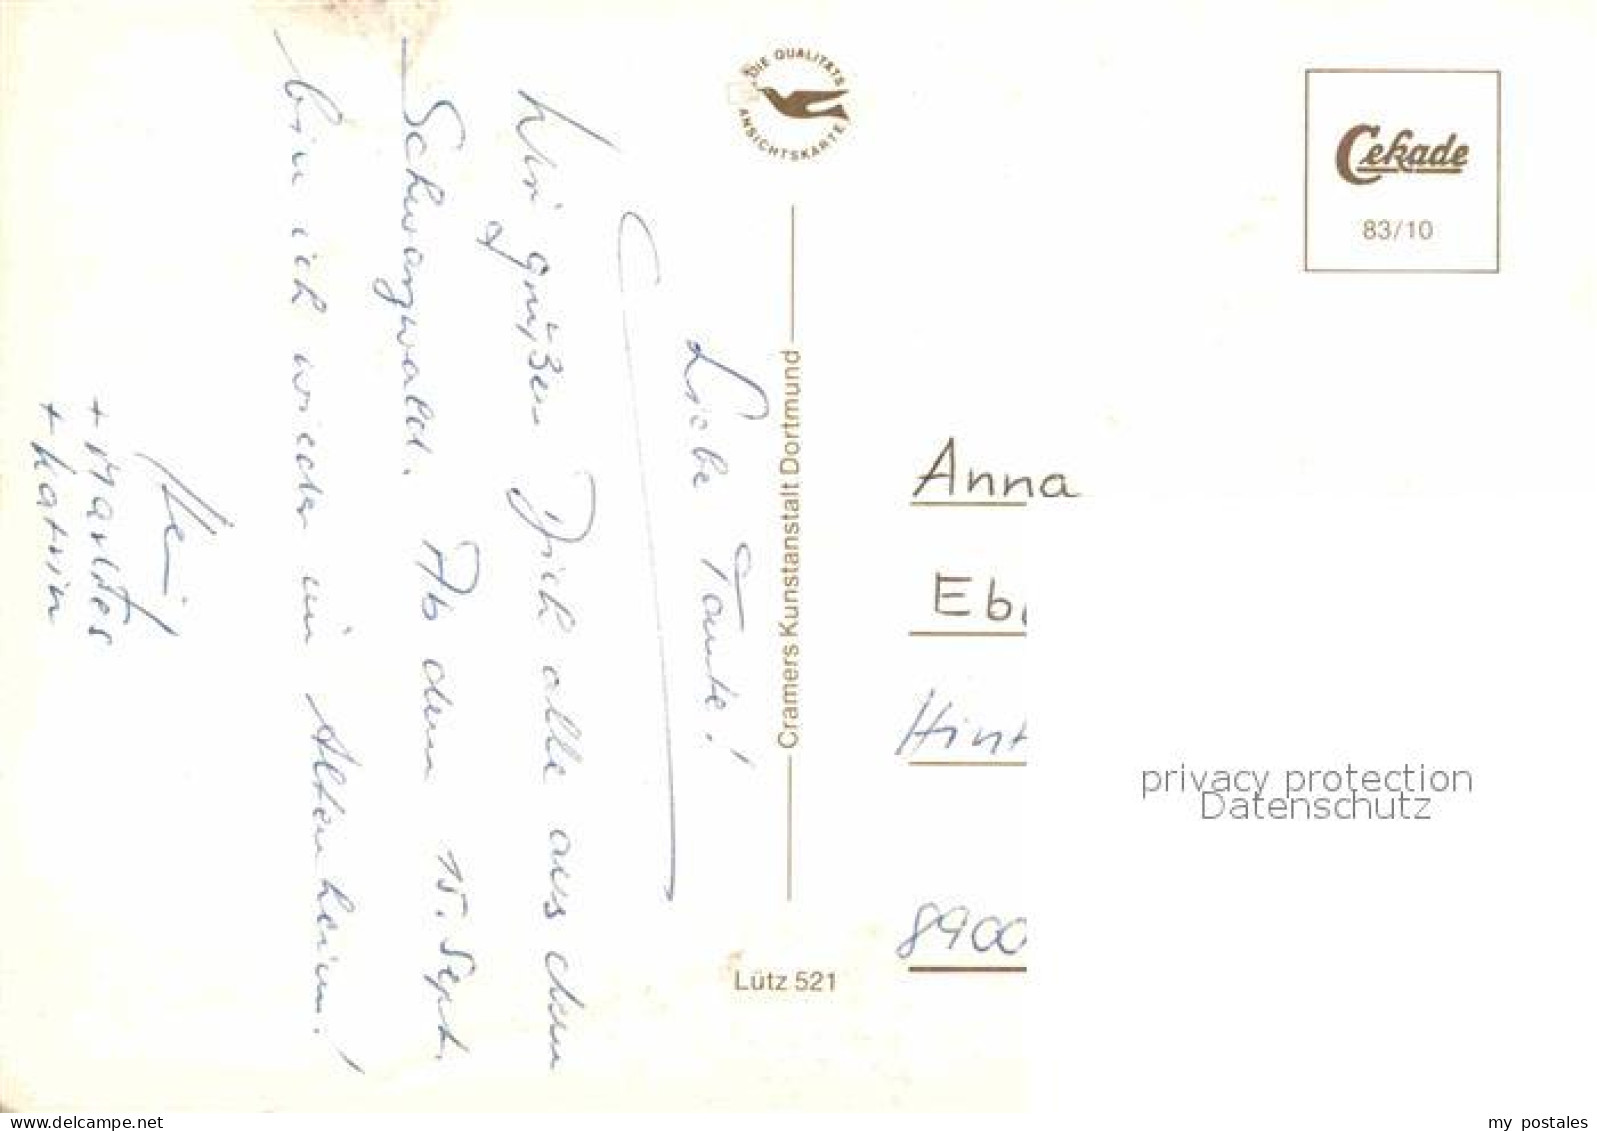 Liebe Tante!
Wir grüßen Dich alle aus dem
Schwarzwald. Ab dem 15. Sept.
bin ich wieder im Altenheim!
+ Marlies
+ Katrin
DIE QUALITÄTS
ANSICHTSKARTE
Cramers Kunstanstalt Dortmund
Lütz 521
Cekade
83/10
Anna
Eb
Hint
8900
privacy protection
Datenschutz
https://www.delcampe.net
my_postales